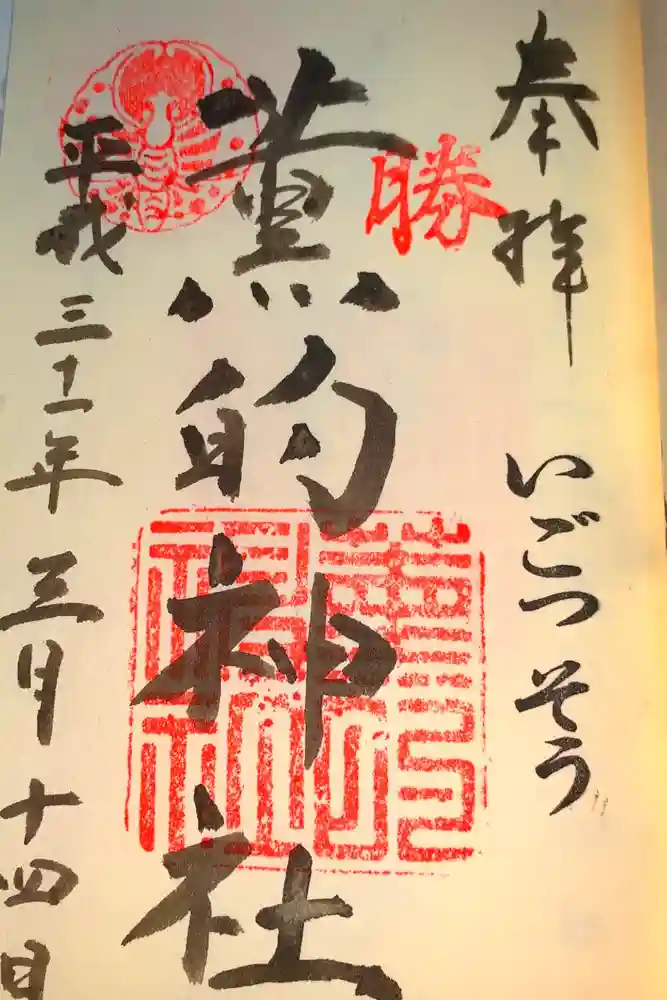 奉拝
いごっそう
勝
薫的神社
平成三十一年三月十四日